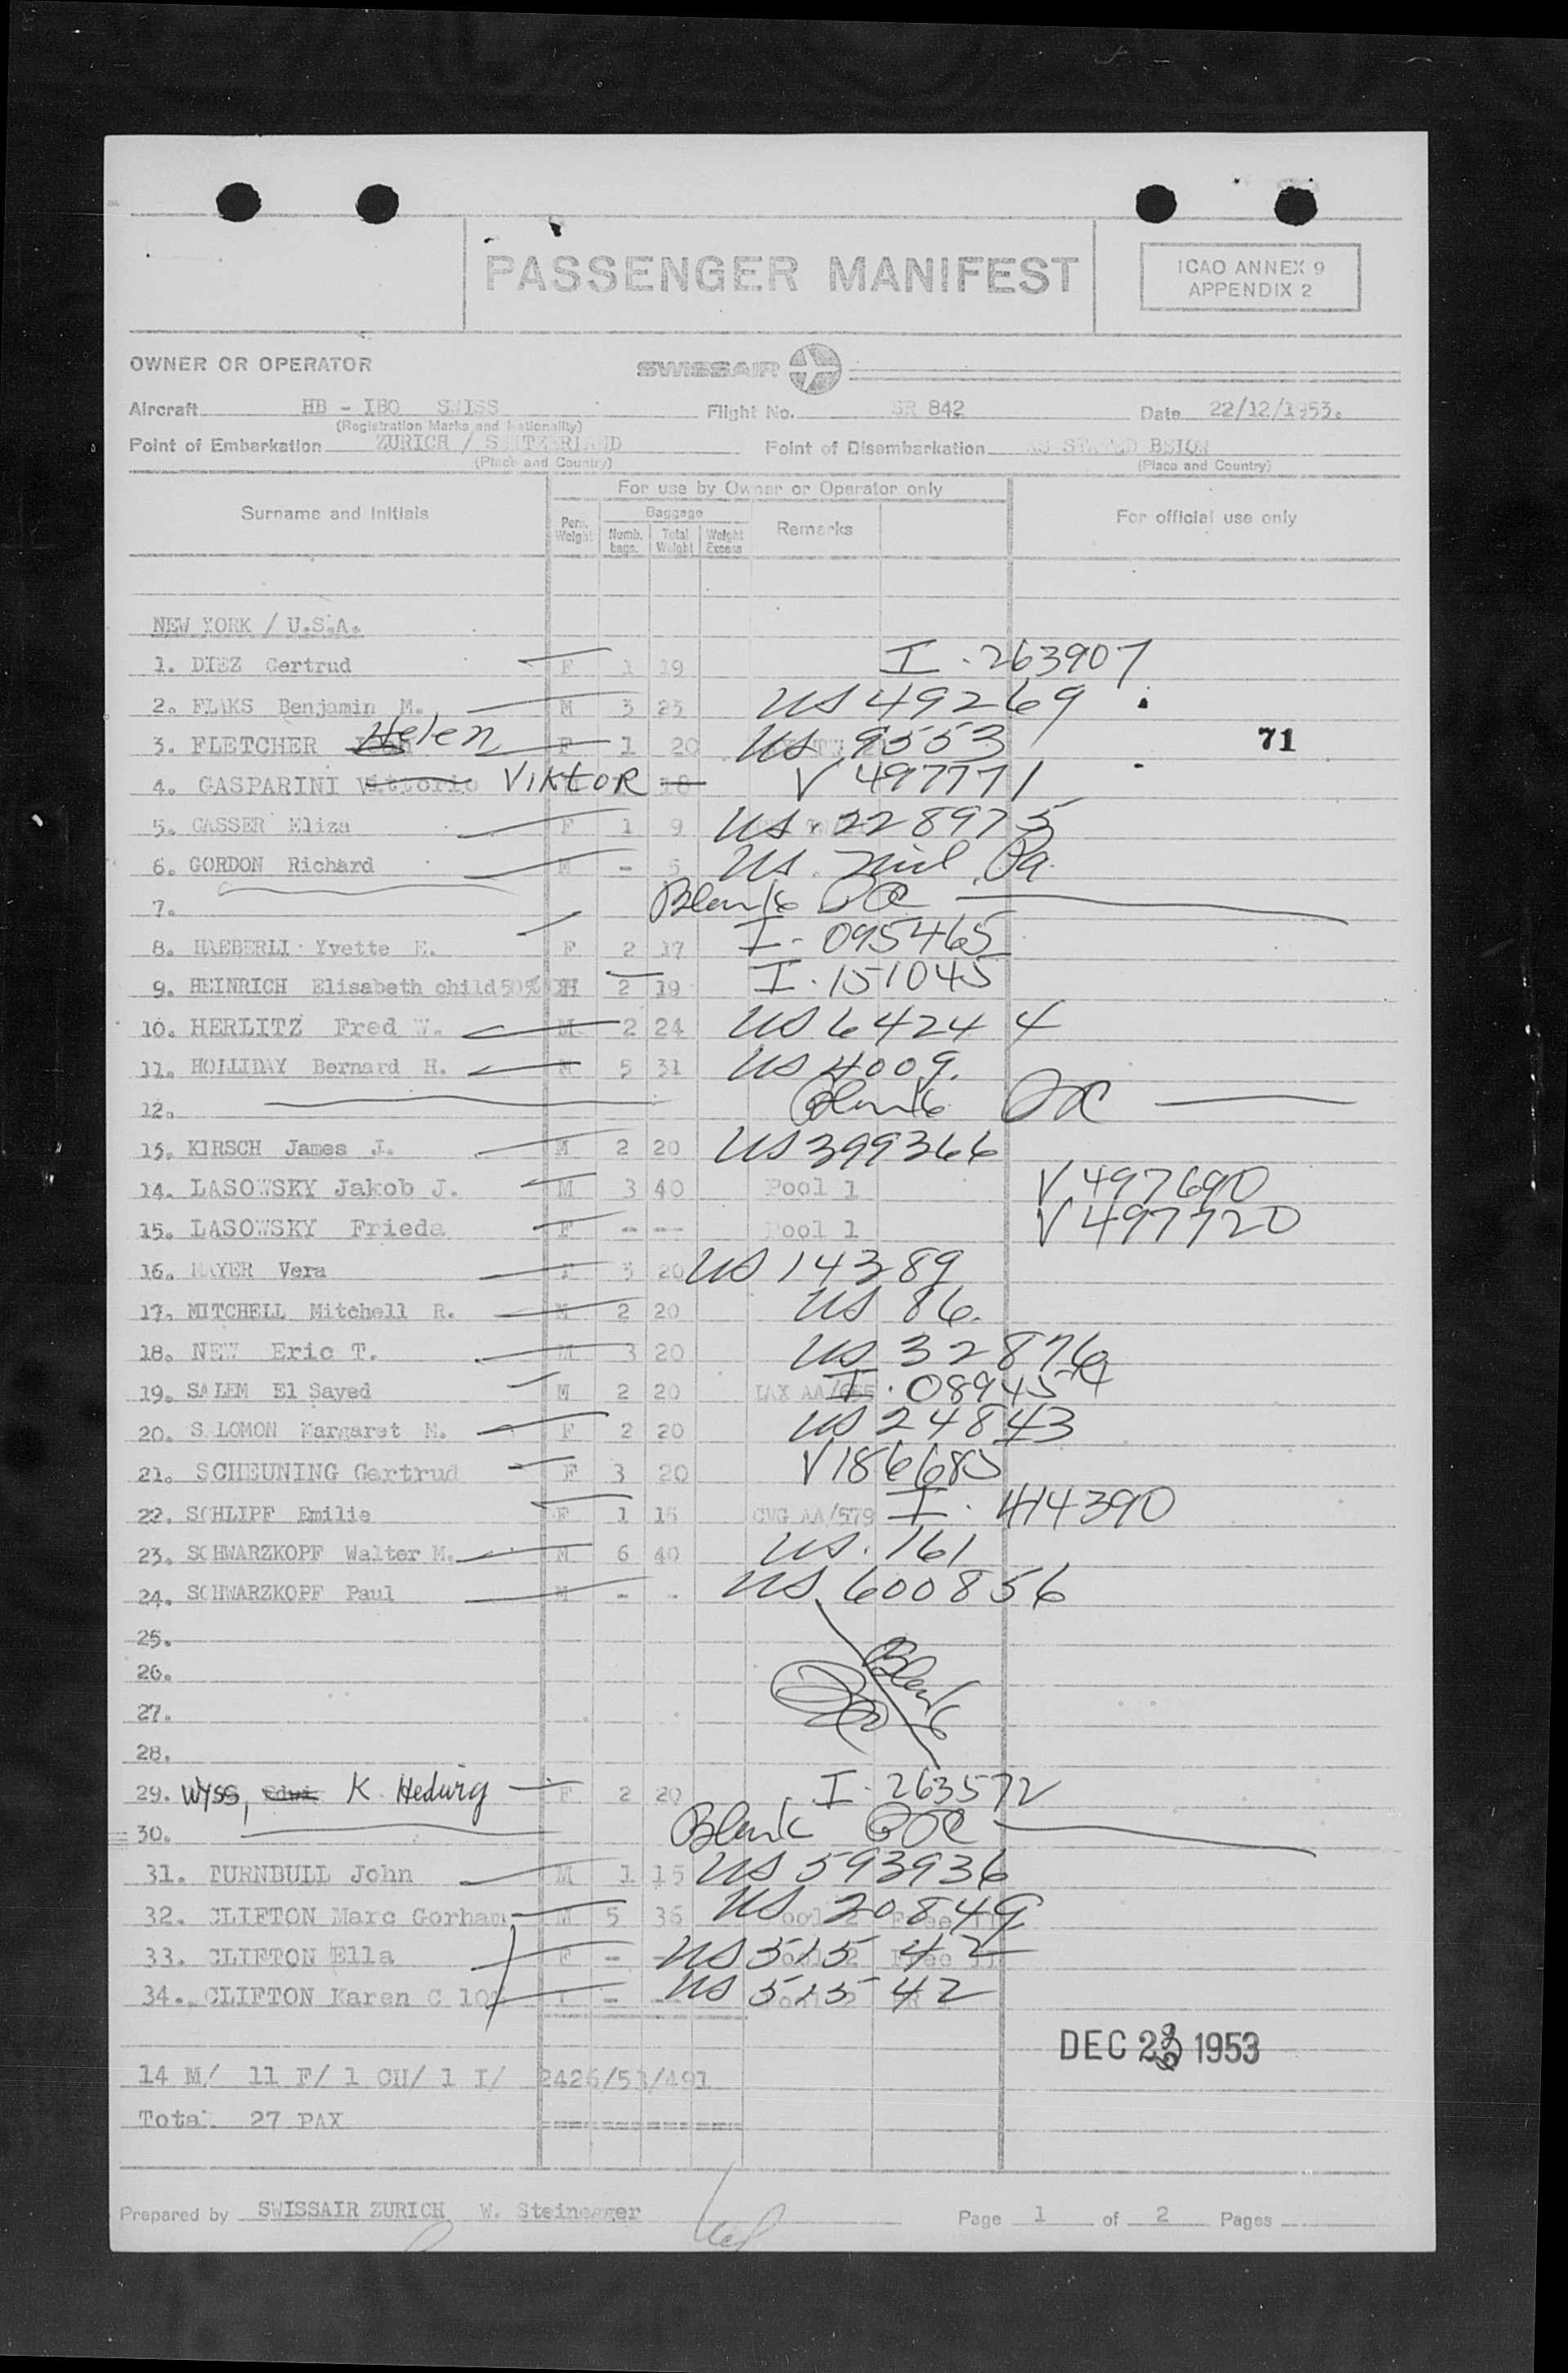 PASSENGER MANIFEST
ICAO ANNEX 9
APPENDIX 2
OWNER OR OPERATOR SWISSAIR
Aircraft HB - IBO SWISS Flight No. SR 842 Date 22/12/1953.
(Registration Marks and Nationality)
Point of Embarkation ZURICH / SWITZERLAND Point of Disembarkation AS STATED BELOW
(Place and Country) (Place and Country)
For use by Owner or Operator only
Surname and Initials Pers. Weight Baggage Numb. bags. Total Weight Weight Excess Remarks For official use only
NEW YORK / U.S.A.
1. DIEZ Gertrud F 1 19 I - 263907
2. FLAKS Benjamin M. M 3 23 US 49269
3. FLETCHER Helen F 1 20 US 9553 71
4. GASPARINI Vittorio VIKTOR 18 V 497771
5. GASSER Eliza F 1 9 US 228975
6. GORDON Richard M - 5 US. Mil Pa.
7. Blank
8. HAEBERLI Yvette E. F 2 17 I - 095465
9. HEINRICH Elisabeth child 50% 2 19 I. 151045
10. HERLITZ Fred W. M 2 24 US 64244
11. HOLLIDAY Bernard H. M 5 31 US 4009.
12. Blank
13. KIRSCH James J. M 2 20 US 399366
14. LASOWSKY Jakob J. M 3 40 Pool 1 V 497690
15. LASOWSKY Frieda F -- --- Pool 1 V 497720
16. MAYER Vera F 3 20 US 14389
17. MITCHELL Mitchell R. M 2 20 US 86.
18. NEW Eric T. M 3 20 US 32876
19. SALEM El Sayed M 2 20 LAX AA/ I. 08945
20. SALOMON Margaret M. F 2 20 US 24843
21. SCHEUNING Gertrud F 3 20 V 186685
22. SCHLIPF Emilie F 1 15 CVG AA/579 I - 414390
23. SCHWARZKOPF Walter M. M 6 40 US. 161
24. SCHWARZKOPF Paul M - - US. 600856
25.
26. Blank
27.
28.
29. WYSS, K. Hedwig F 2 20 I - 263572
30. Blank
31. TURNBULL John M 1 15 US 593936
32. CLIFTON Marc Gorham M 5 36 US 20849
33. CLIFTON Ella F - - US 51542
34. CLIFTON Karen C I - - US 51542
DEC 1953
14 M/ 11 F/ 1 CH/ 1 I/ 2426/53/491
Total 27 PAX
Prepared by SWISSAIR ZURICH W. Steinegger Page 1 of 2 Pages